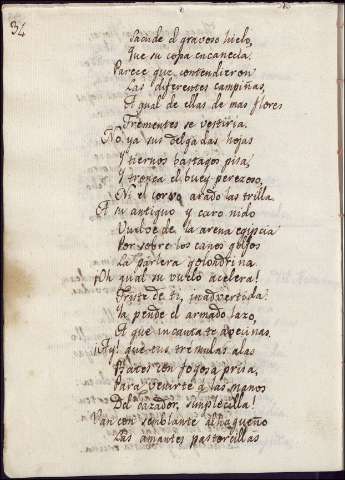 34
Sacude el gravoso hielo,
Que su copa encanecia.
Parece que contendieron
Las diferentes campiñas,
A qual de ellas de mas flores
Trementes se vestiria.
No ya sus delgadas hojas
Y tiernos bastagos pisa,
Y tronca el buey perezoso,
Ni el corvo arado las trilla.
A su antiguo y caro nido
Vuelve de la arena egypcia
Por sobre los canos golfos
La parlera golondrina.
¡Oh qual su vuelo acelera!
Triste de ti, inadvertida:
Ya pende el armado lazo,
A que incauta te avecinas.
¡Ay! que tus tremulas alas
Bates con fogosa prisa,
Para venirte a las manos
Del cazador, simplecilla!
Van con semblante alhagueño
Las amantes pastorcillas